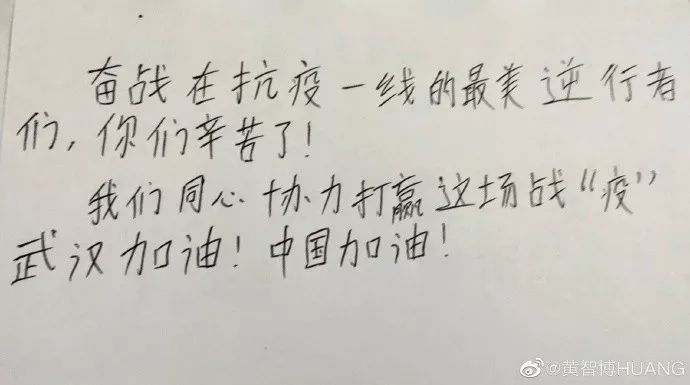 奋战在抗疫一线的最美逆行者
们,你们辛苦了!
我们同心协力打赢这场战“疫”
武汉加油!中国加油!
@黄智博HUANG